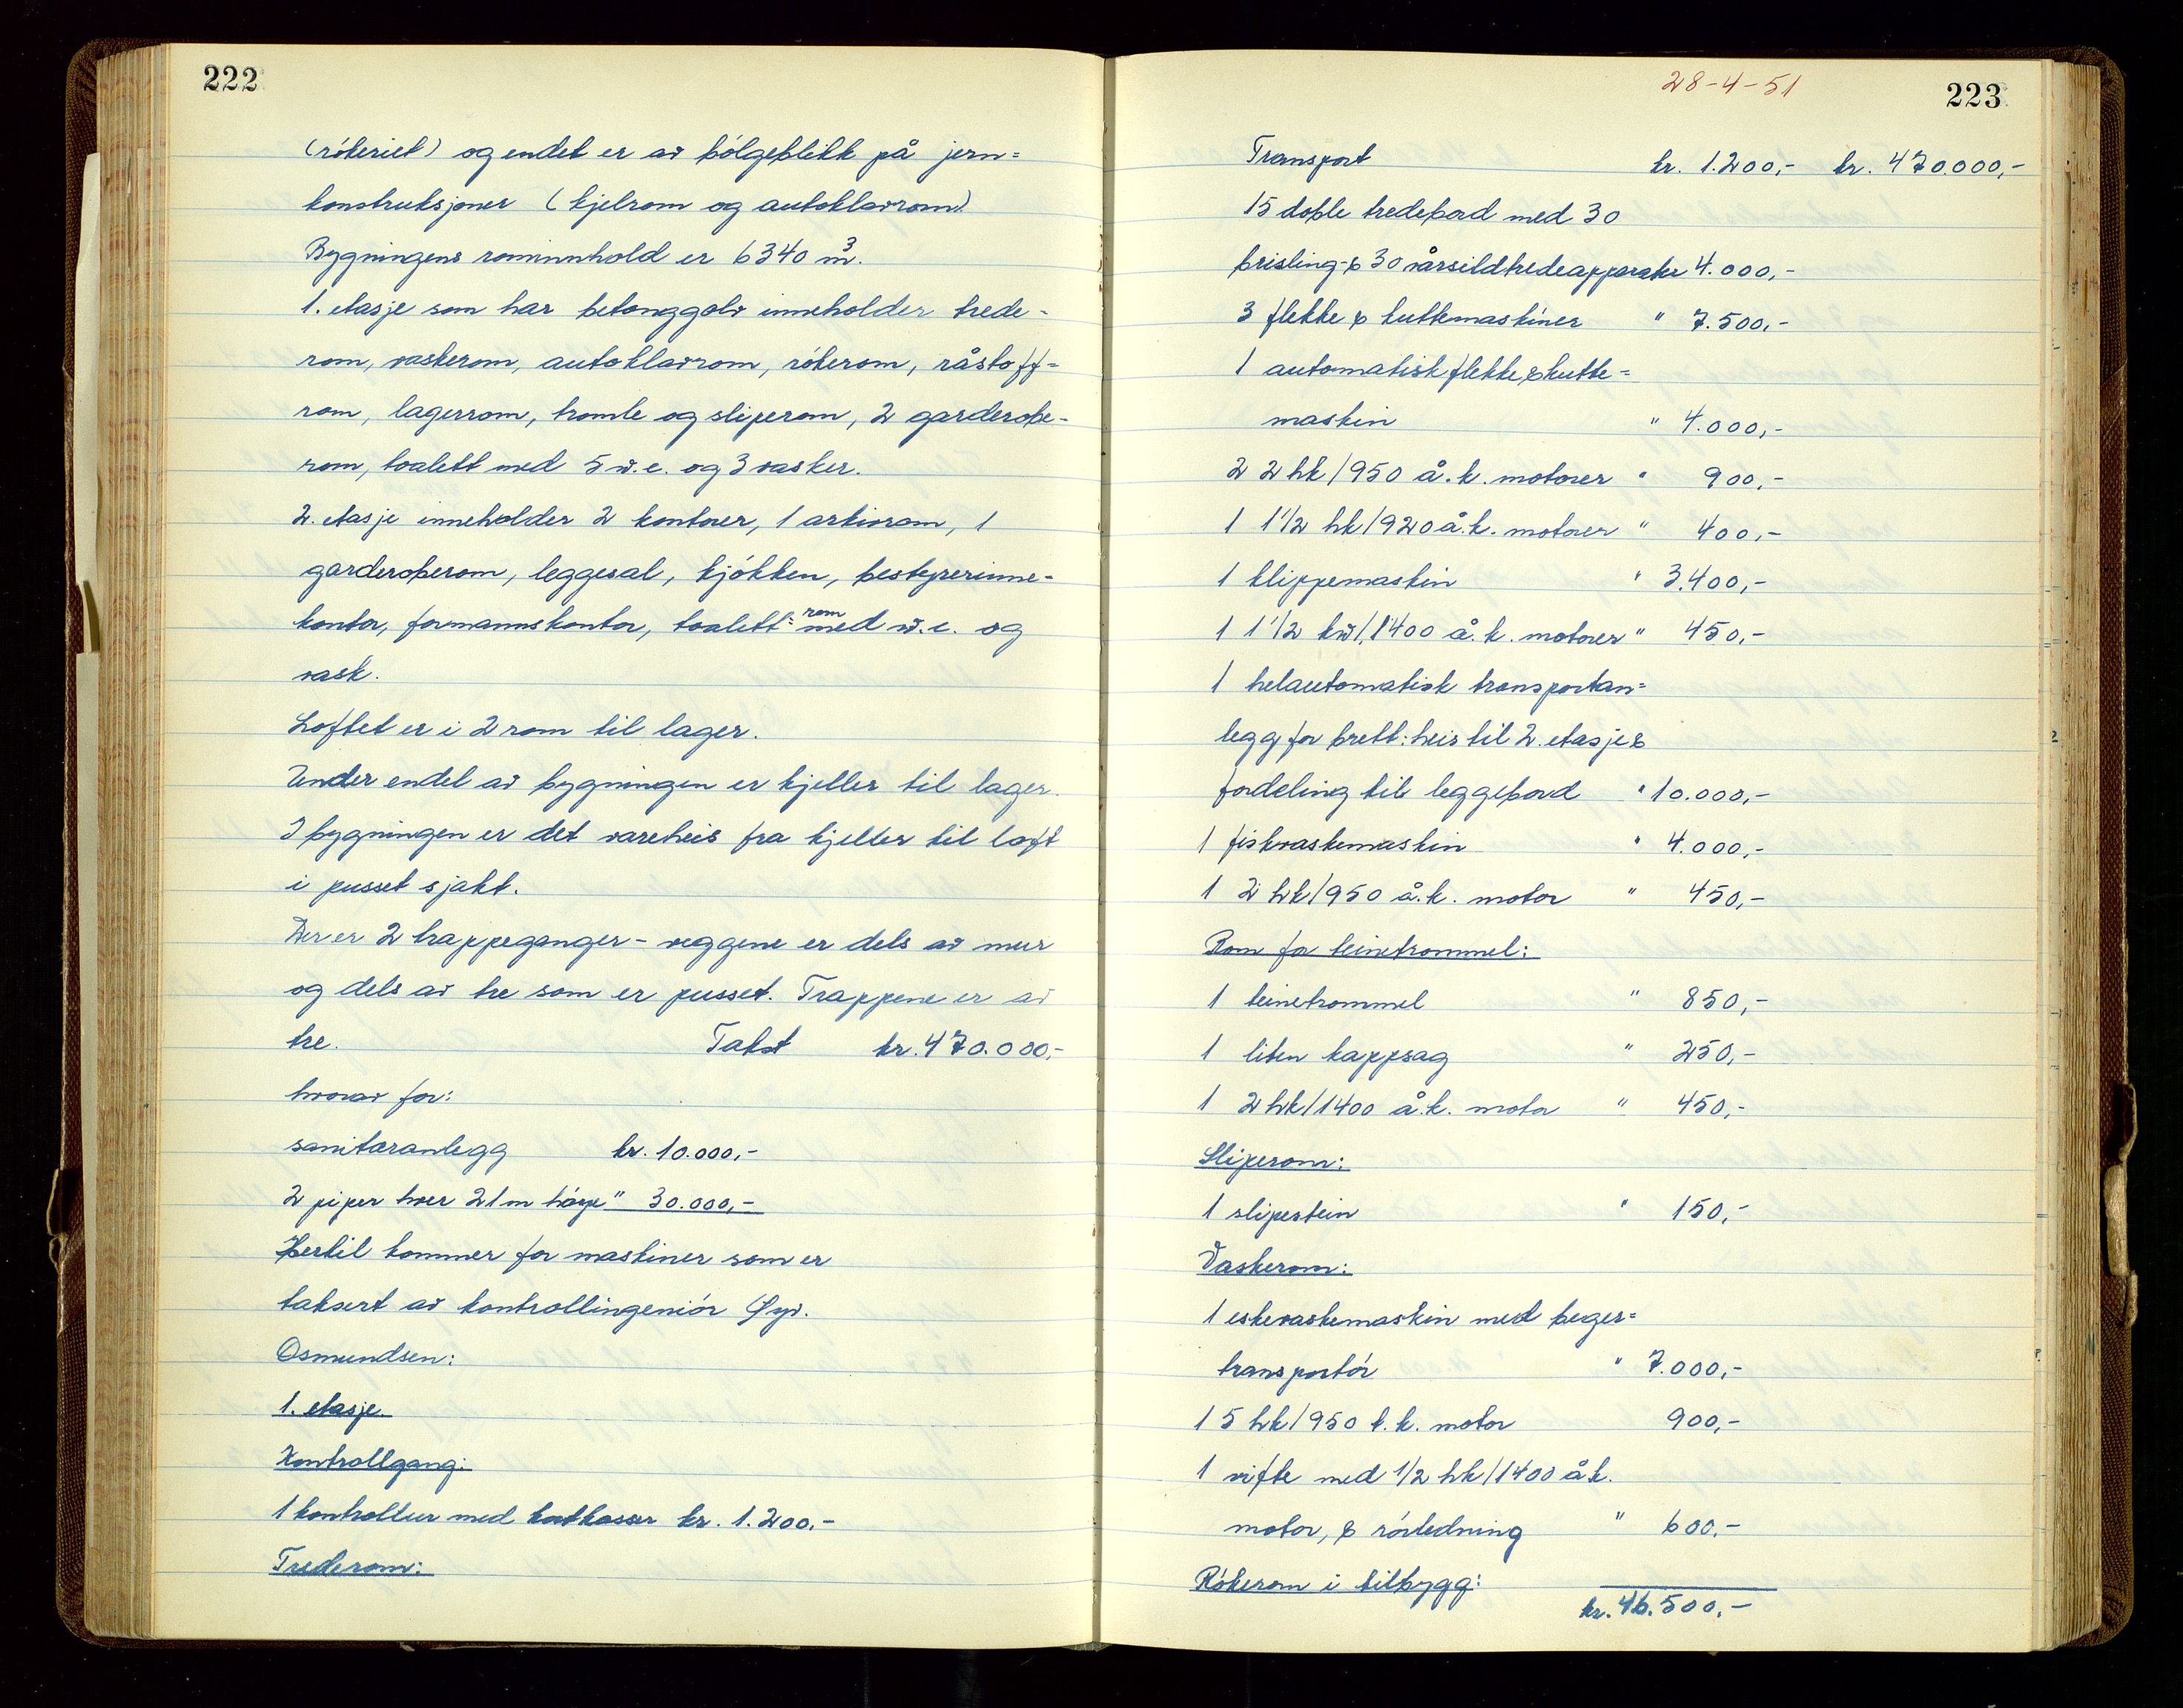 222
(rökeriet) og endet er av bölgeblikk på jern=
konstruksjoner (kjelrom og autoklavrom).
Bygningens rominnhold er 6340 m³.
1. etasje som har betonggolv inneholder trede-
rom, vaskerom, autoklavrom, rökerom, råstoff=
rom, lagerrom, tromle og sliperom, 2 garderobe-
rom, toalett med 5 w.c. og 3 vasker.
2. etasje inneholder 2 kontorer, 1 arkivrom, 1
garderoberom, leggesal, kjökken, bestyrerinne-
kontor, formannskontor, toalett=rom med w.c. og
vask.
Loftet er i 2 rom til lager.
Under endel av bygningen er kjeller til lager.
I bygningen er det vareheis fra kjeller til loft
i pusset sjakt.
Der er 2 trappeganger - veggene er dels av mur
og dels av tre som er pusset. Trappene er av
tre. Takst kr. 470.000,-
hvorav for:
sanitæranlegg kr. 10.000,-
2 piper hver 21 m höye " 30.000,-
Hertil kommer for maskiner som er
taksert av kontrollingeniör Syv.
Osmundsen:
1. etasje.
Kontrollgang:
1 kontrollur med kortkasser kr. 1.200,-
Trederom:
28-4-51
223
Transport kr. 1.200,- kr. 470.000,-
15 doble tredebord med 30
brisling- & 30 vårsildtredeapparater 4.000,-
3 flekke & kuttemaskiner " 7.500,-
1 automatisk flekke & kutte=
maskin " 4.000,-
2 2 hk/950 å.k. motorer " 900,-
1 1 1/2 hk/920 å.k. motorer " 400,-
1 klippemaskin " 3.400,-
1 1 1/2 kw/1400 å.k. motorer " 450,-
1 helautomatisk transportan=
legg for brett: heis til 2. etasje &
fordeling til leggebord " 10.000,-
1 fiskvaskemaskin " 4.000,-
1 2 hk/950 å.k. motor " 450,-
Rom for teinetrommel:
1 teinetrommel " 850,-
1 liten kappsag " 250,-
1 2 hk/1400 å.k. motor " 450,-
Sliperom:
1 slipestein " 150,-
Vaskerom:
1 eskevaskemaskin med beger=
transportör " 7.000,-
1 5 hk/950 k.k. motor 900,-
1 vifte med 1/2 hk/1400 å.k.
motor, & rörledning " 600,-
Rökerom i tilbygg:
kr. 46.500,-